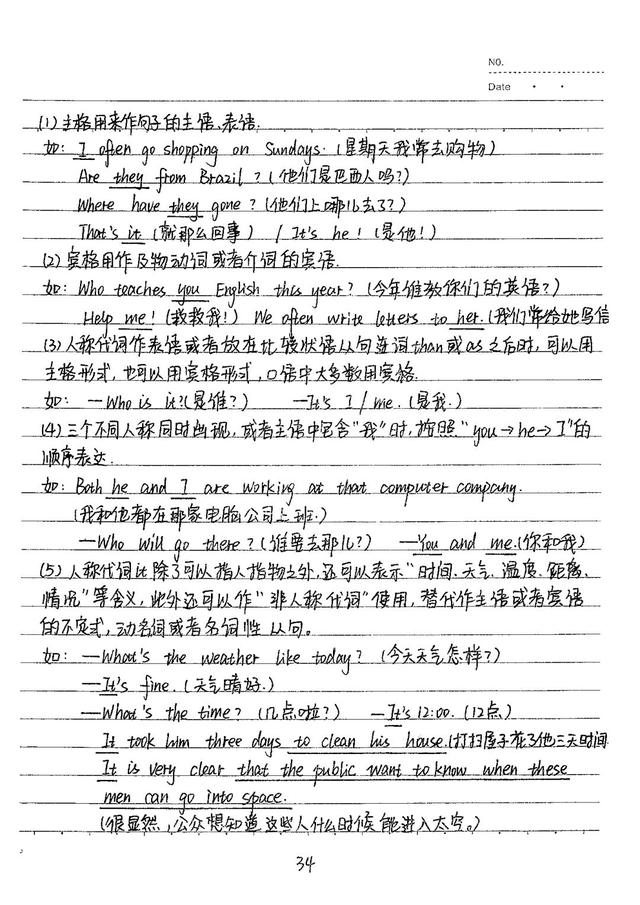 NO.
Date
(1) 主格用来作句子的主语、表语.
如: I often go shopping on Sundays. (星期天我常去购物)
Are they from Brazil? (他们是巴西人吗?)
Where have they gone? (他们上哪儿去了?)
That's it (就那么回事) / It's he! (是他!)
(2) 宾格用作及物动词或者介词的宾语.
如: Who teaches you English this year? (今年谁教你们的英语?)
Help me! (救救我!) We often write letters to her. (我们常给她写信
(3) 人称代词作表语或者放在比较状语从句连词than或as之后时, 可以用
主格形式, 也可以用宾格形式, 口语中大多数用宾格.
如: —Who is it? (是谁?) —It's I / me. (是我.)
(4) 三个不同人称同时出现, 或者主语中包含“我”时, 按照“you→he→I”的
顺序表达.
如: Both he and I are working at that computer company.
(我和他都在那家电脑公司上班.)
—Who will go there? (谁要去那儿?) —You and me. (你和我)
(5) 人称代词it除了可以指人指物之外, 还可以表示“时间、天气、温度、距离、
情况”等含义, 此外还可以作“非人称代词”使用, 替代作主语或者宾语
的不定式, 动名词或者名词性从句。
如: —What's the weather like today? (今天天气怎样?)
—It's fine. (天气晴好.)
—What's the time? (几点啦?) —It's 12:00. (12点)
It took him three days to clean his house. (打扫屋子花了他三天时间
It is very clear that the public want to know when these
men can go into space.
(很显然, 公众想知道这些人什么时候能进入太空。)
34